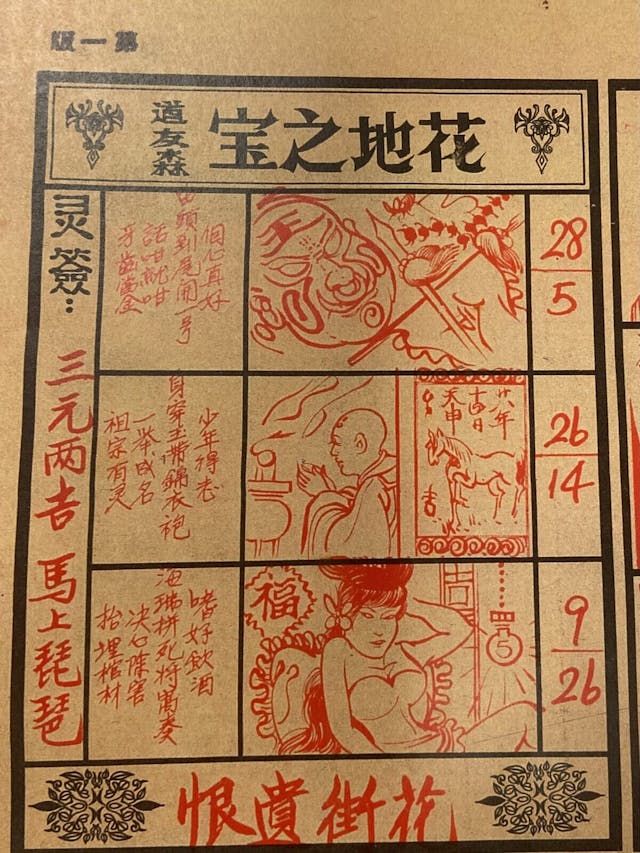 第一版
花地之宝
道友森
灵簽:
三元两吉 馬上琵琶
個心真好
由頭到尾開一号
話咁就咁
牙齒當金
王
28
5
少年得志
身穿玉带錦衣袍
一举成名
祖宗有灵
廿八年
天申
吉
26
14
嗜好飲酒
海瑞拼死将萬奏
决心除害
抬埋棺材
福
5
9
26
花街恨